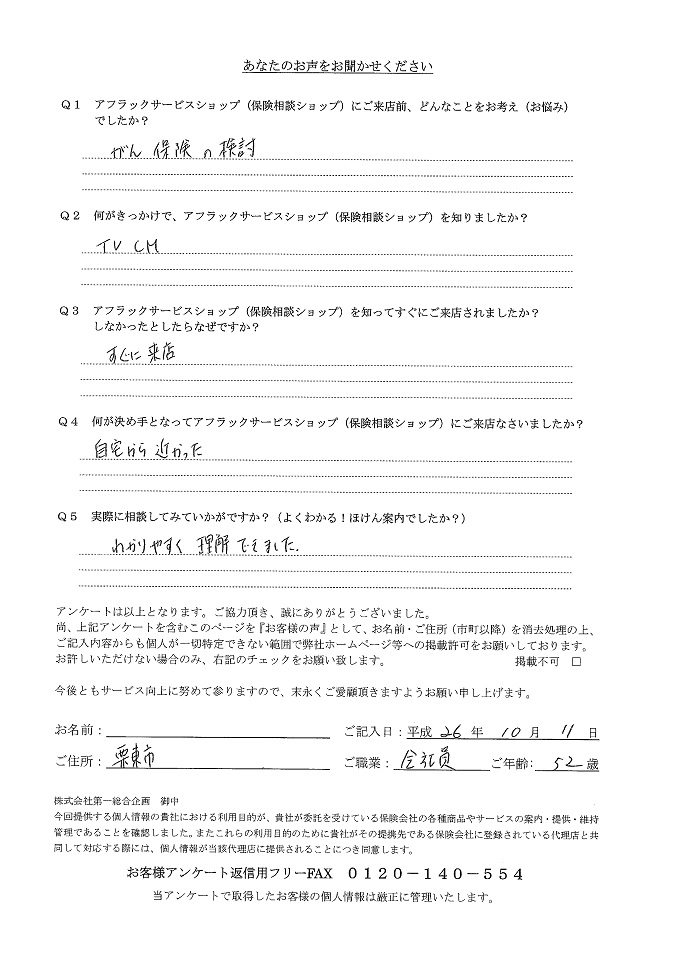 あなたのお声をお聞かせください
Q1 アフラックサービスショップ(保険相談ショップ)にご来店前、どんなことをお考え(お悩み)
でしたか?
がん保険の検討
Q2 何がきっかけで、アフラックサービスショップ(保険相談ショップ)を知りましたか?
TV CM
Q3 アフラックサービスショップ(保険相談ショップ)を知ってすぐにご来店されましたか?
しなかったとしたらなぜですか?
すぐに来店
Q4 何が決め手となってアフラックサービスショップ(保険相談ショップ)にご来店なさいましたか?
自宅から近かった
Q5 実際に相談してみていかがですか?(よくわかる!ほけん案内でしたか?)
わかりやすく理解できました.
アンケートは以上となります。ご協力頂き、誠にありがとうございました。
尚、上記アンケートを含むこのページを『お客様の声』として、お名前・ご住所(市町以降)を消去処理の上、
ご記入内容からも個人が一切特定できない範囲で弊社ホームページ等への掲載許可をお願いしております。
お許しいただけない場合のみ、右記のチェックをお願い致します。 掲載不可 □
今後ともサービス向上に努めて参りますので、末永くご愛顧頂きますようお願い申し上げます。
お名前: ご記入日:平成 26 年 10 月 11 日
ご住所: 栗東市 ご職業: 会社員 ご年齢: 52 歳
株式会社第一総合企画 御中
今回提供する個人情報の貴社における利用目的が、貴社が委託を受けている保険会社の各種商品やサービスの案内・提供・維持
管理であることを確認しました。またこれらの利用目的のために貴社がその提携先である保険会社に登録されている代理店と共
同して対応する際には、個人情報が当該代理店に提供されることにつき同意します。
お客様アンケート返信用フリーFAX 0120-140-554
当アンケートで取得したお客様の個人情報は厳正に管理いたします。